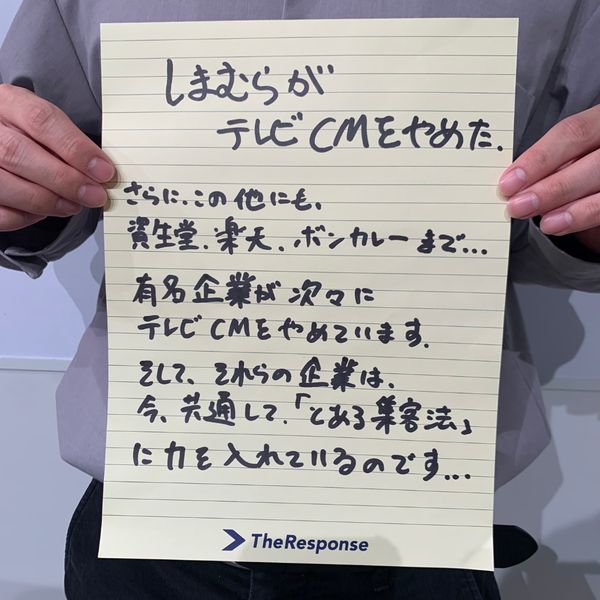 しまむらが
テレビCMをやめた.
さらに.この他にも.
資生堂.楽天.ボンカレーまで...
有名企業が次々に
テレビCMをやめています.
そして.それらの企業は.
今.共通して.「とある集客法」
に力を入れているのです...
TheResponse